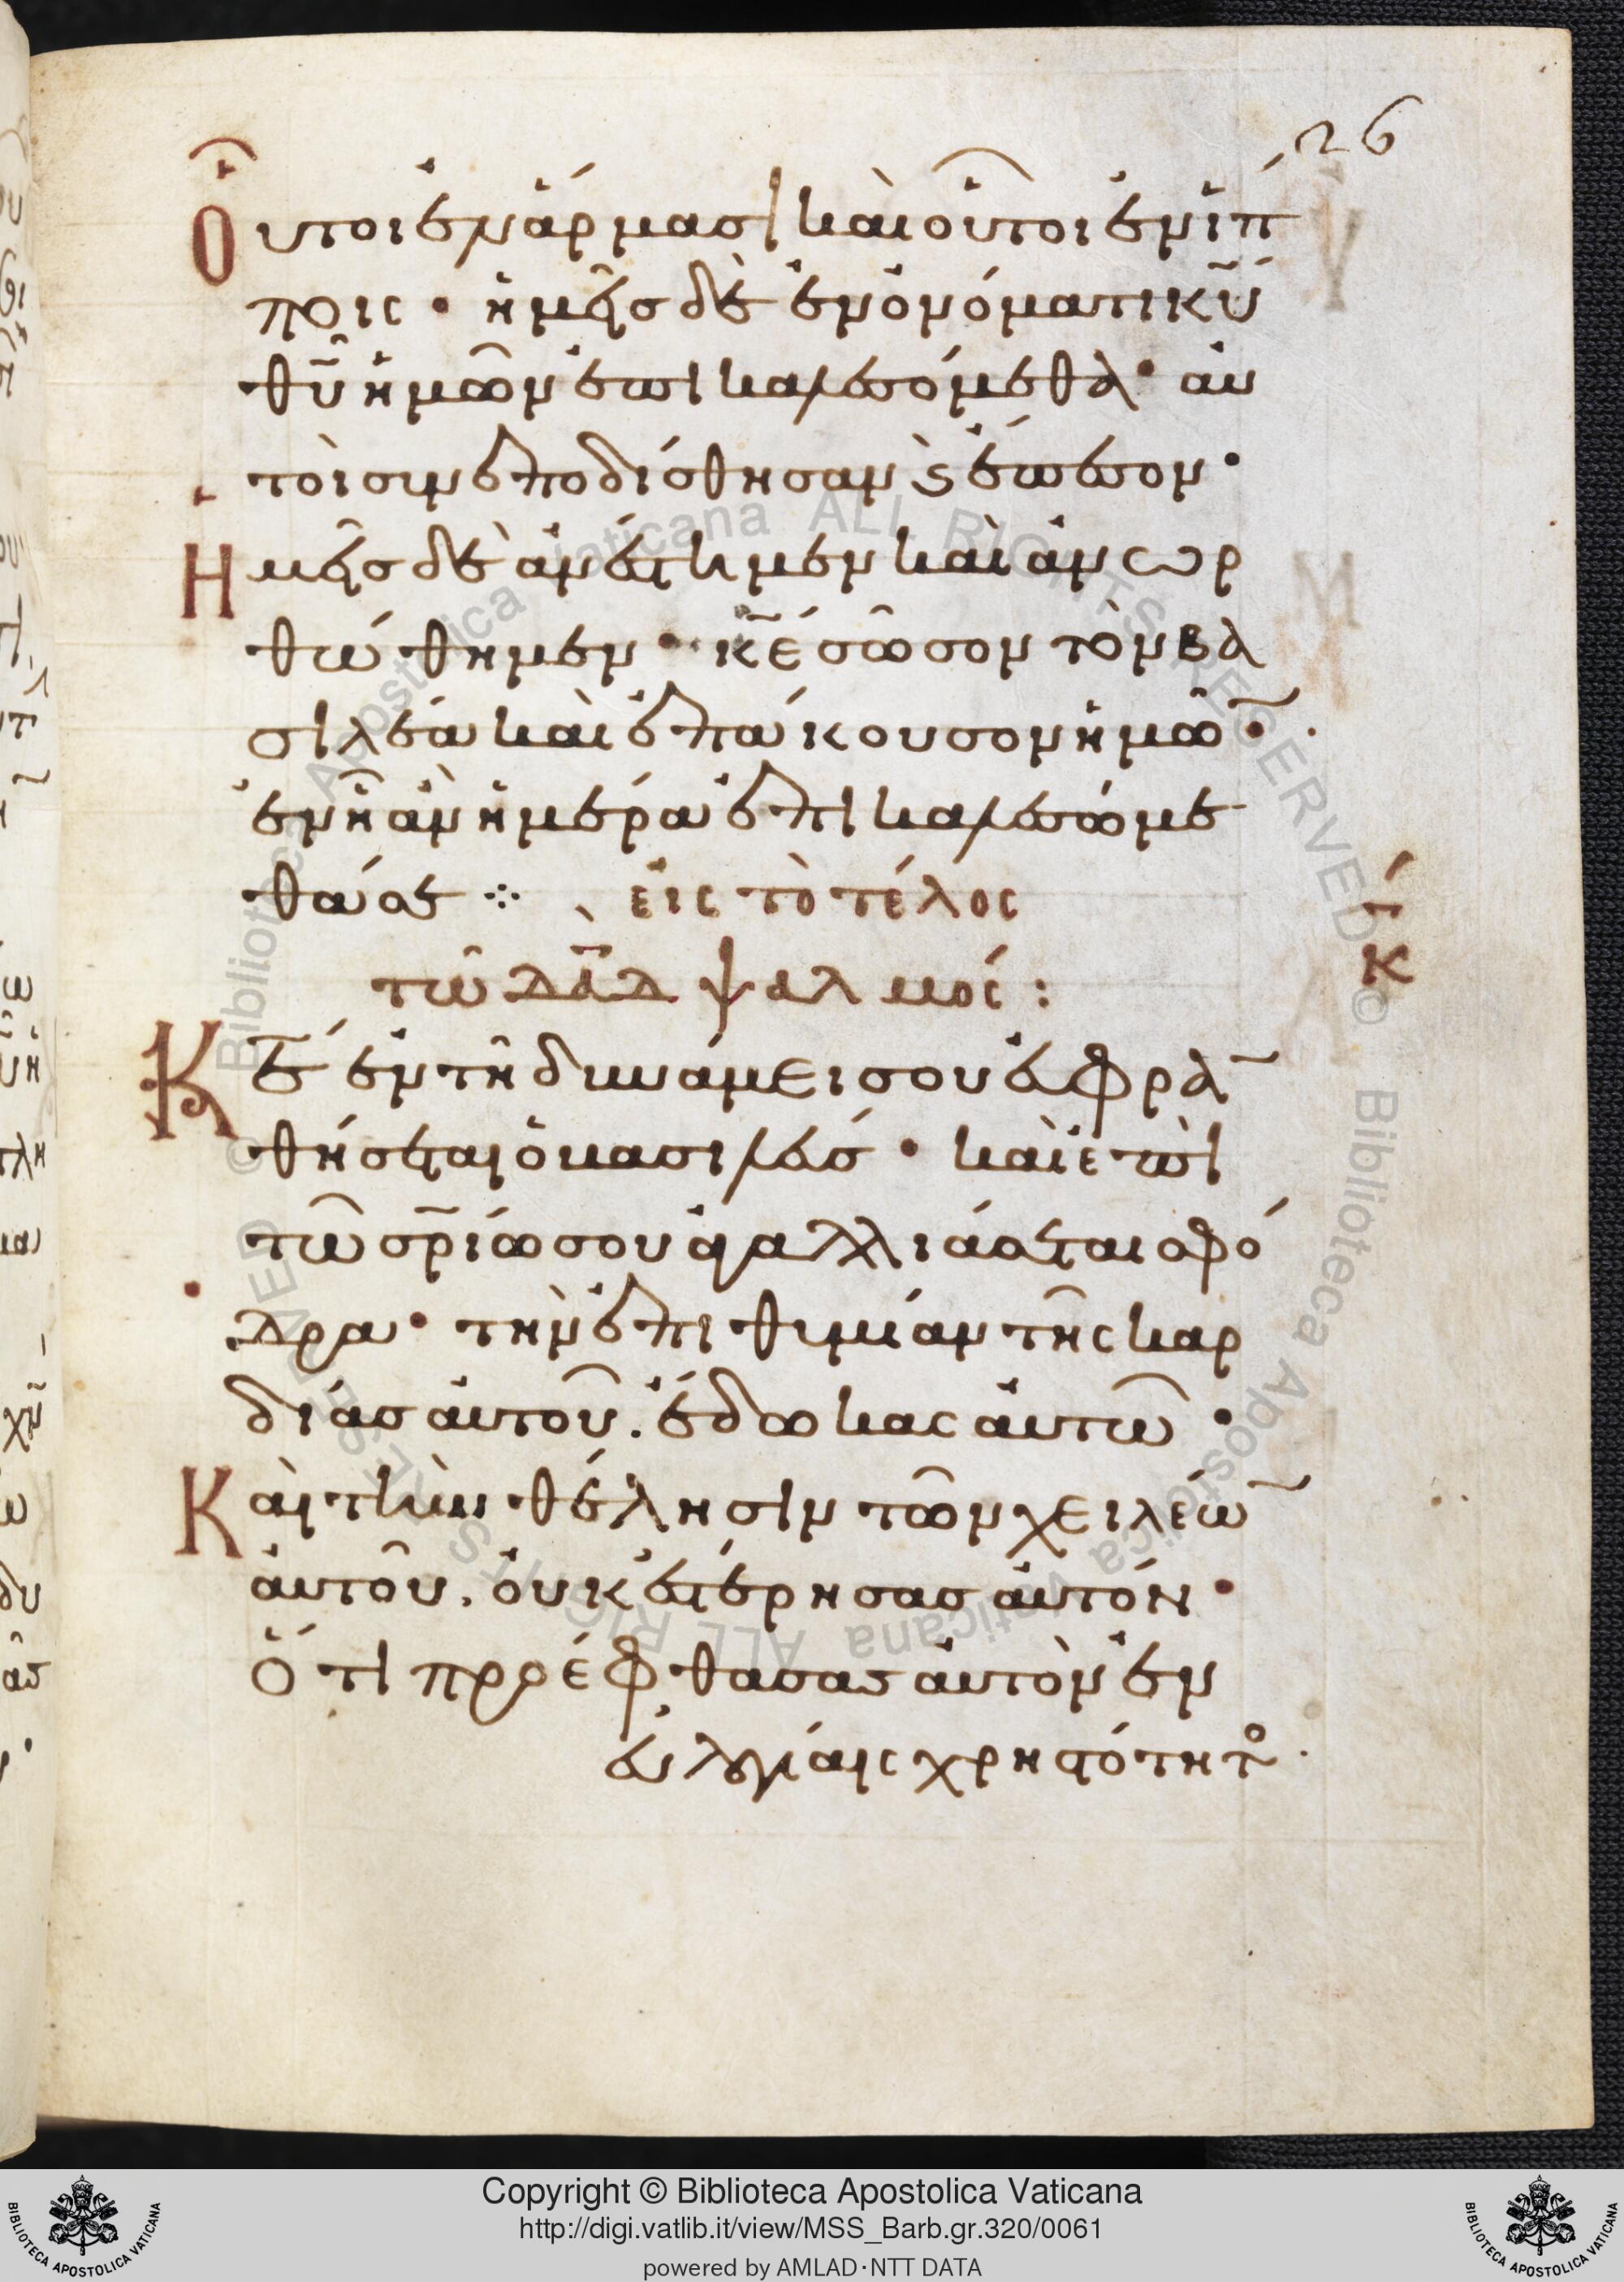 26
Οὗτοι ἐν ἅρμασι καὶ οὗτοι ἐν ἵπ
ποις · ἡμεῖς δὲ ἐν ὀνόματι κ̅υ̅
θ̅υ̅ ἡμῶν ἐπικαλεσόμεθα · αὐ
τοὶ συνεποδίσθησαν ϗ ἔπεσον ·
Ἡμεῖς δὲ ἀνέστημεν καὶ ἀνωρ
θώθημεν · κ̅ε̅ σῶσον τὸν βα
σιλέα καὶ ἐπάκουσον ἡμῶ̅ ·
ἐν ἧ ἂν ἡμέρα ἐπικαλεσώμε
θά σε ⁘ εἰς τὸ τέλος
τῶ δ̅α̅δ̅ ψαλμός :
κ̅
Κ̅ε̅ ἐν τῆ δυνάμει σου εὐφρα̅
θήσεται ὁ βασιλεύς · καὶ ἐπὶ
τῶ σ̅ρ̅ίω σου ἀγαλλιάσεται σφό
δρα · τὴν ἐπιθυμίαν τῆς καρ
δίας αὐτοῦ . ἔδωκας αὐτῶ ·
Καὶ τὴν θέλησιν τῶν χειλέω̅
αὐτοῦ . οὐκ ἐστέρησας αὐτόν ·
Ὅτι προέφθασας αὐτὸν ἐν
εὐλογίαις χρηστότητο ·
Copyright © Biblioteca Apostolica Vaticana
http://digi.vatlib.it/view/MSS_Barb.gr.320/0061
powered by AMLAD·NTT DATA
BIBLIOTECA APOSTOLICA VATICANA
BIBLIOTECA APOSTOLICA VATICANA
© Biblioteca Apostolica Vaticana ALL RIGHTS RESERVED
© Biblioteca Apostolica Vaticana ALL RIGHTS RESERVED